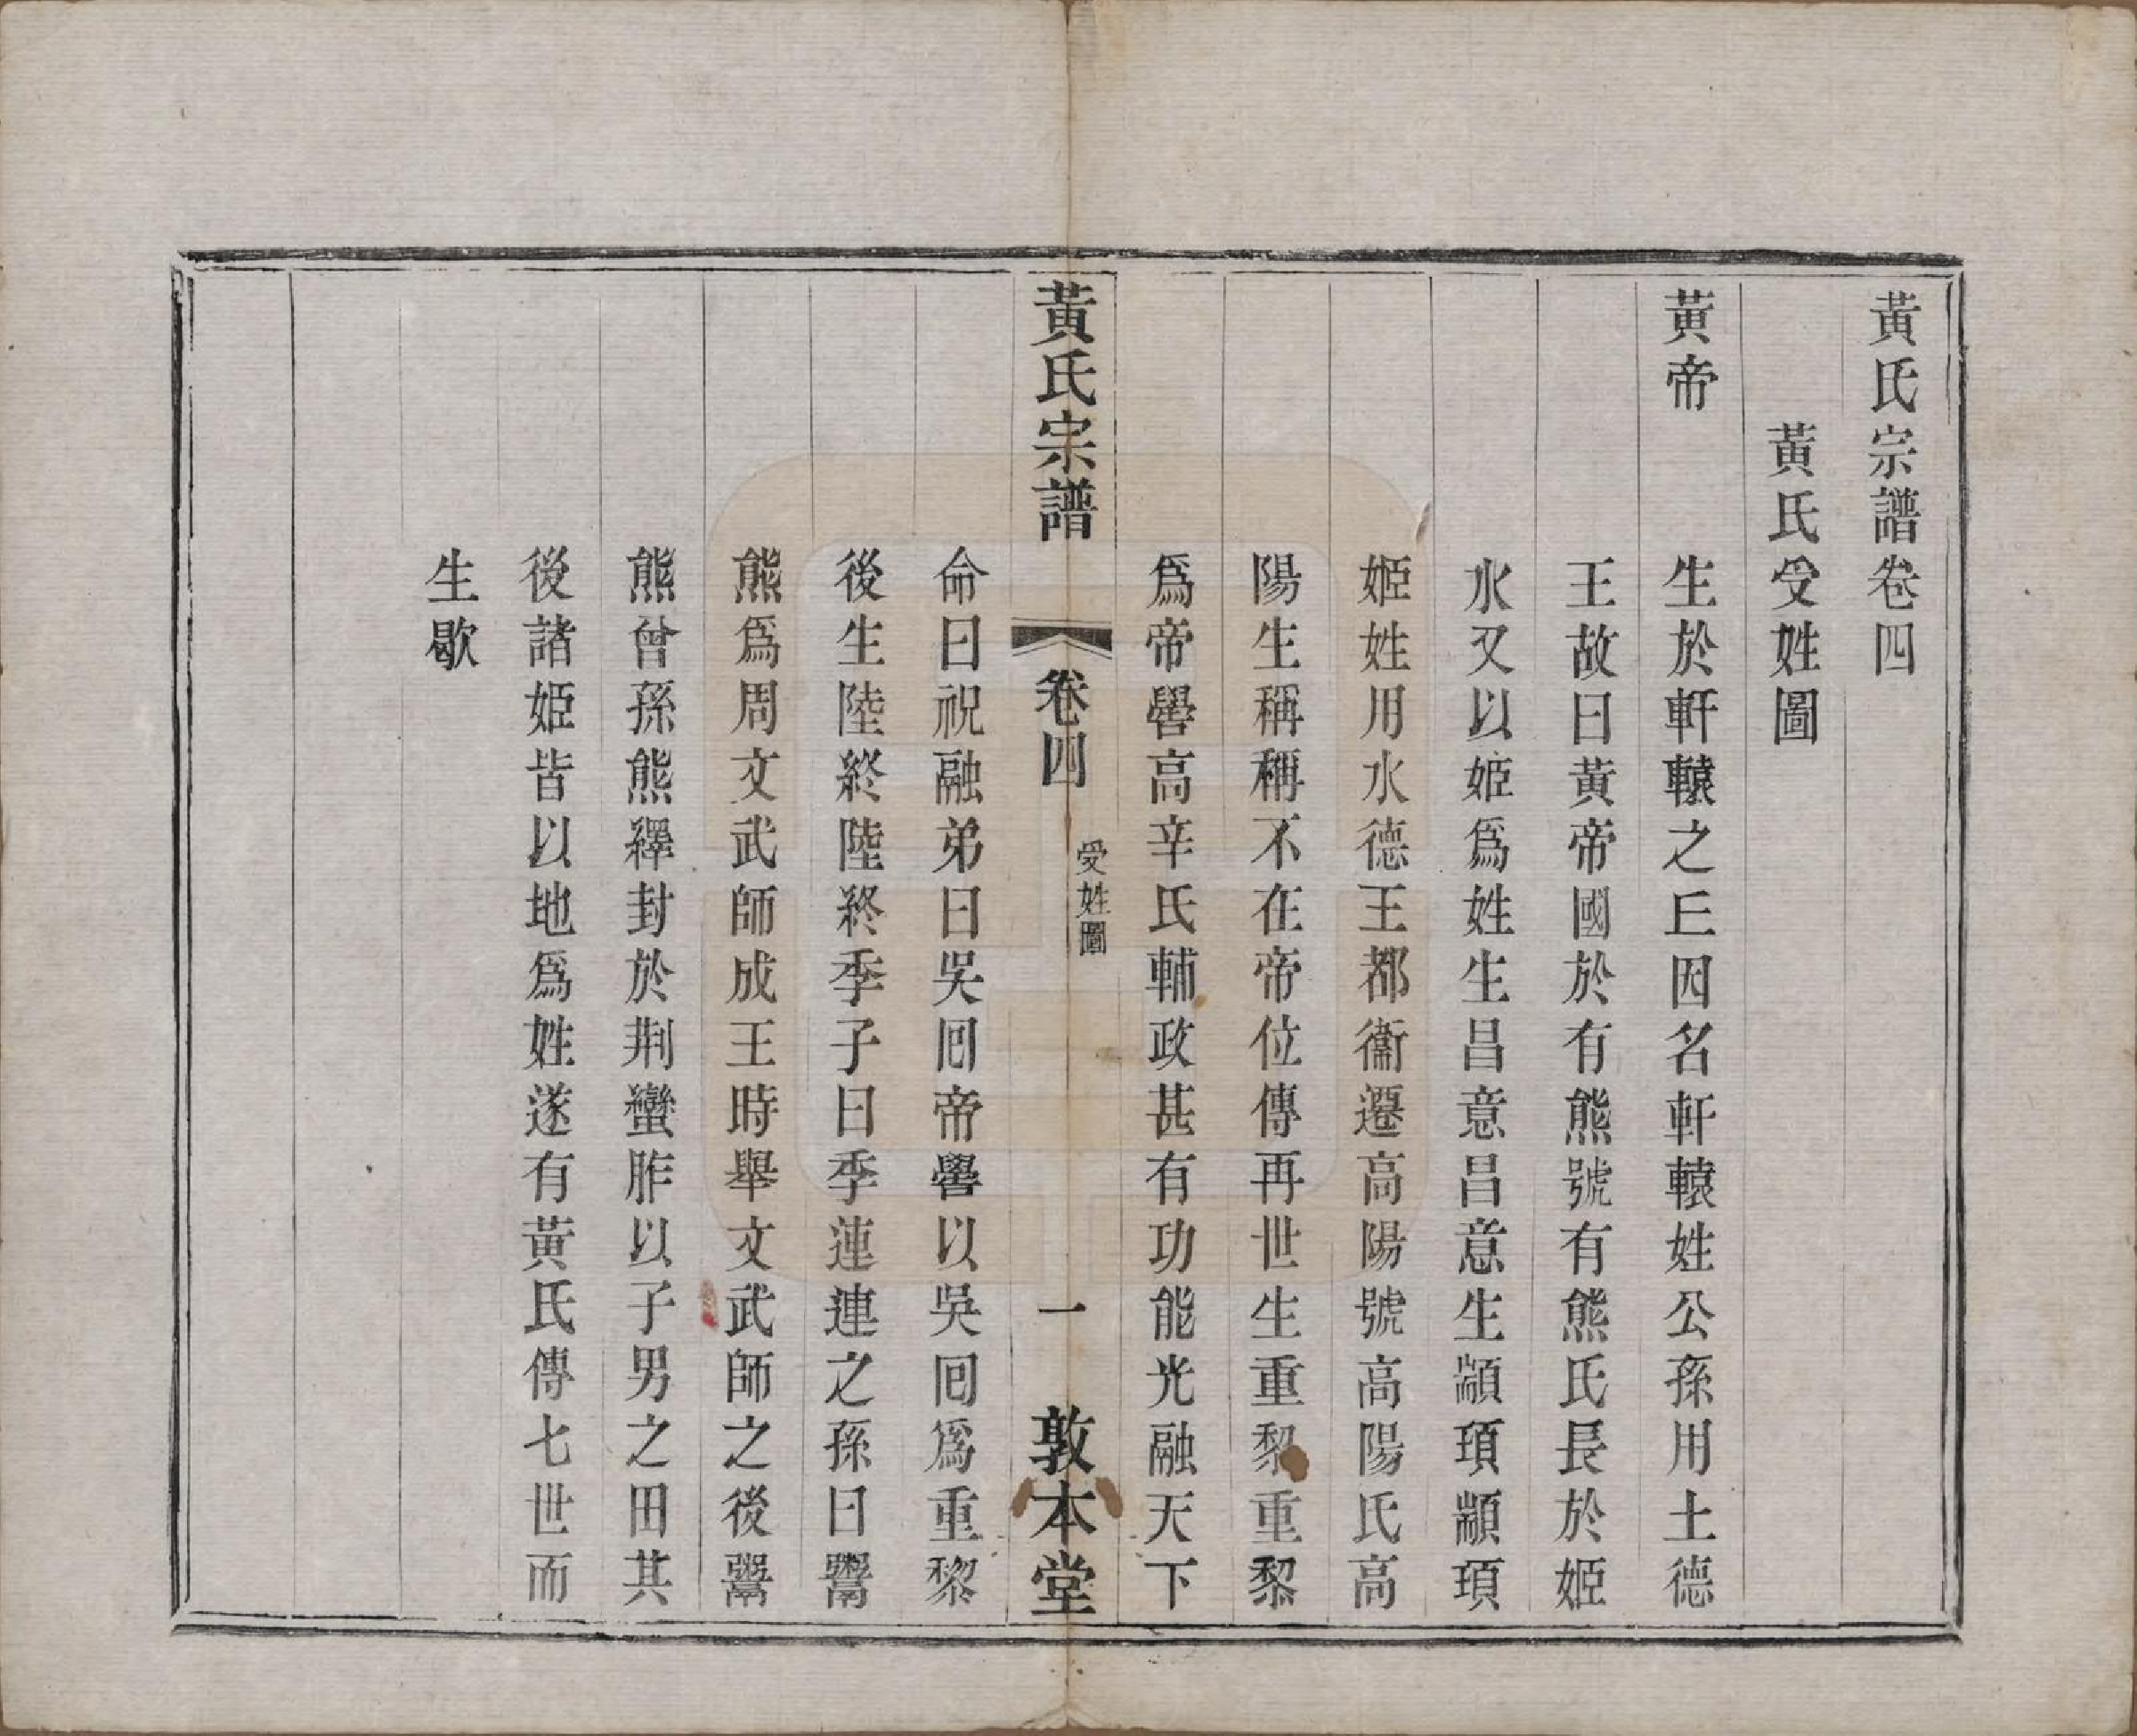 黃氏宗譜卷四
黃氏受姓圖
黃帝　生於軒轅之𠀉因名軒轅姓公孫用土德
王故曰黃帝國於有熊號有熊氏長於姬
水又以姬爲姓生昌意昌意生顓頊顓頊
姬姓用水德王都衞遷高陽號高陽氏高
陽生稱稱不在帝位傳再世生重黎重黎
爲帝嚳高辛氏輔政甚有功能光融天下
黃氏宗譜　卷四　受姓圖　一　敦本堂
命曰祝融弟曰吳囘帝嚳以吳囘爲重黎
後生陸終陸終季子曰季連連之孫曰鬻
熊爲周文武師成王時舉文武師之後鬻
熊曾孫熊繹封於荆蠻胙以子男之田其
後諸姬皆以地爲姓遂有黃氏傳七世而
生歇